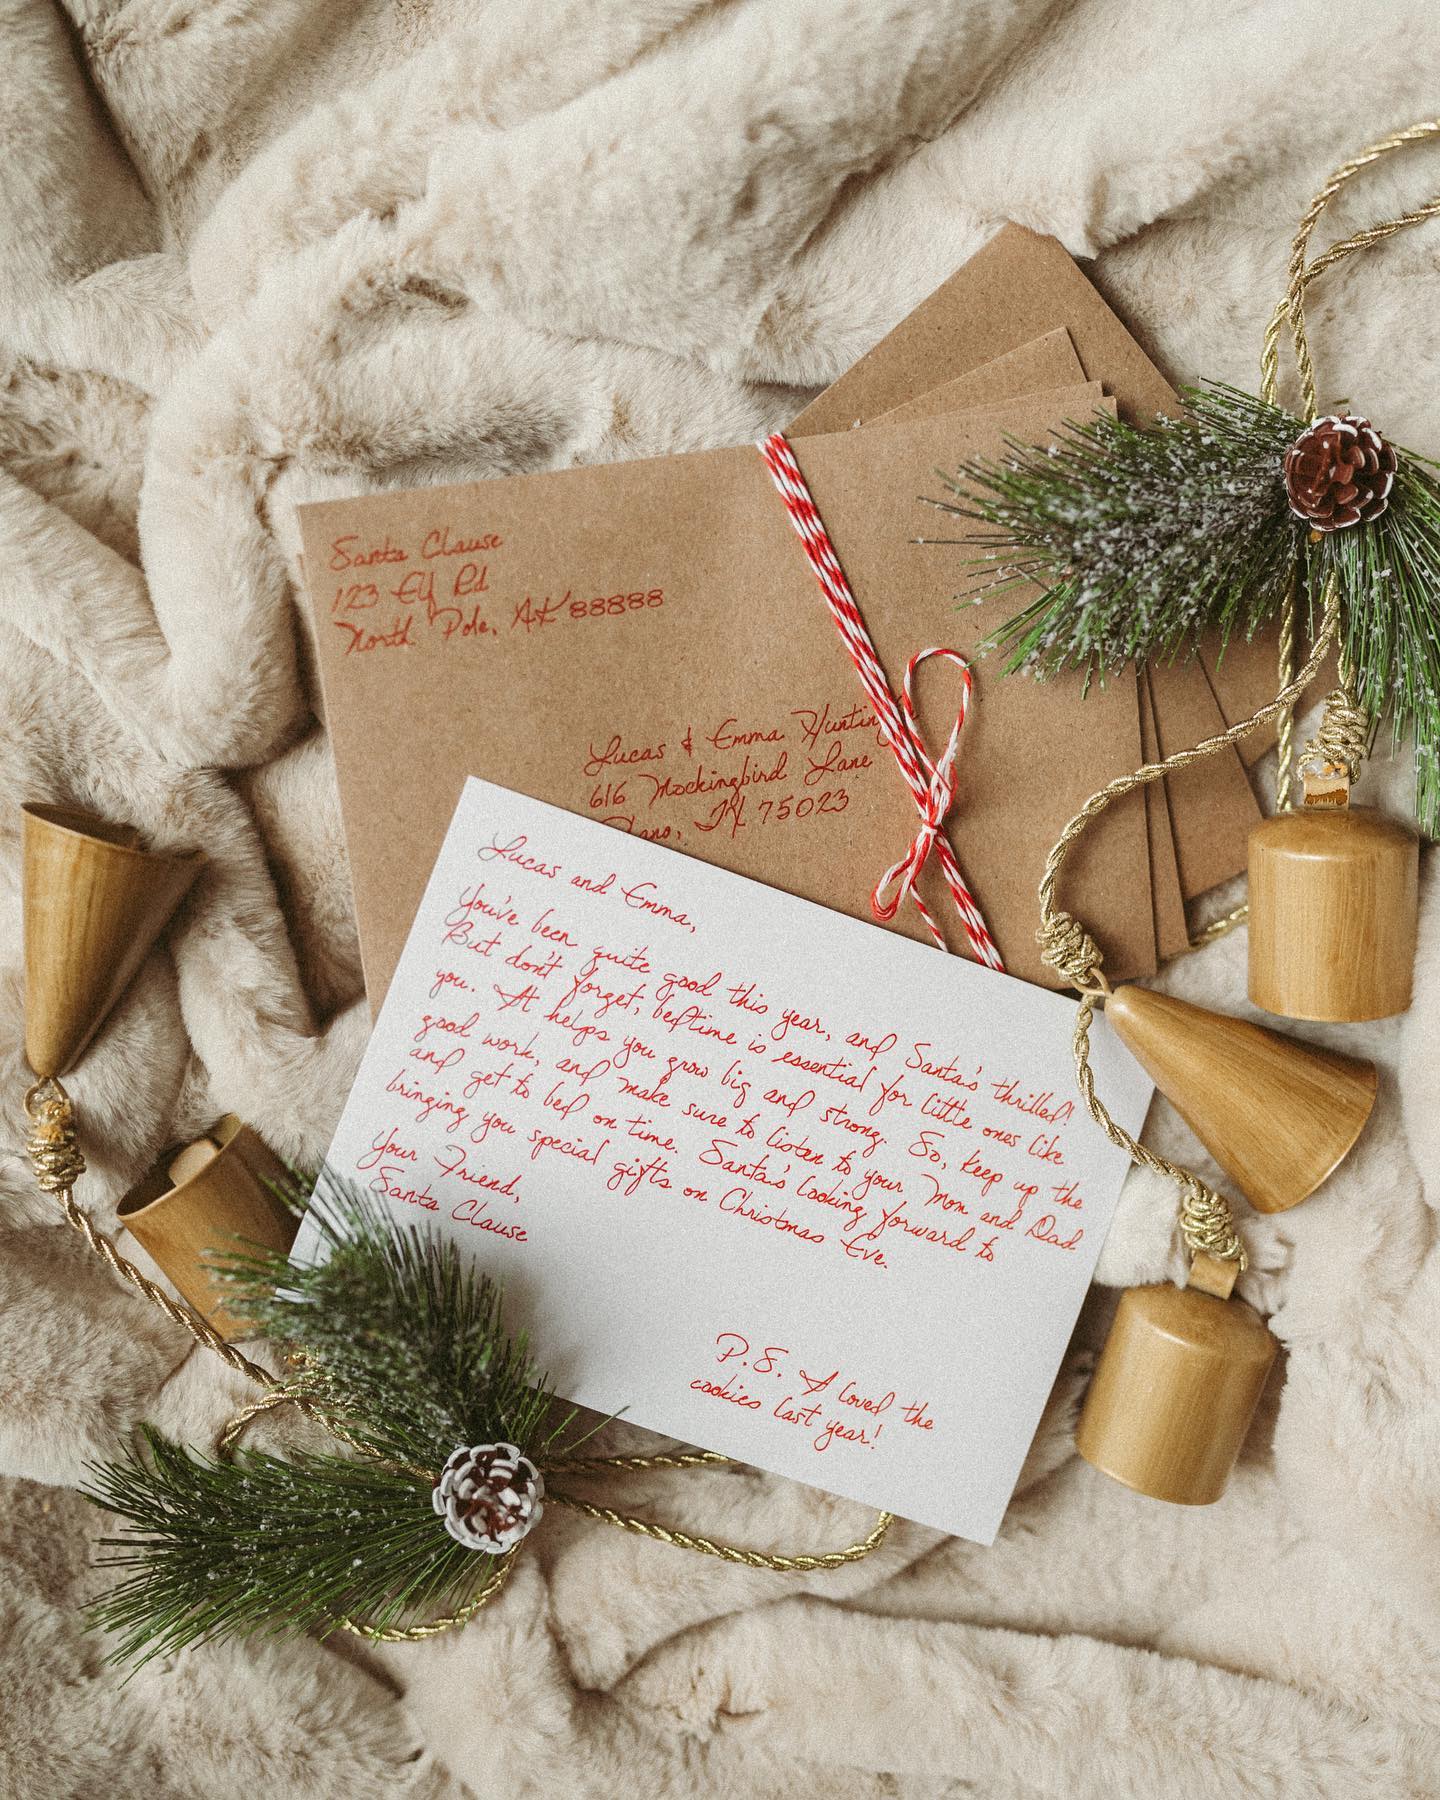 Santa Clause
123 Elf Rd
North Pole, AK 88888
Lucas & Emma Hunting
616 Mockingbird Lane
Plano, TX 75023
Lucas and Emma,
You've been quite good this year, and Santa's thrilled!
But don't forget, bedtime is essential for little ones like
you. It helps you grow big and strong. So, keep up the
good work, and make sure to listen to your Mom and Dad
and get to bed on time. Santa's looking forward to
bringing you special gifts on Christmas Eve.
Your Friend,
Santa Clause
P.S. I loved the
cookies last year!